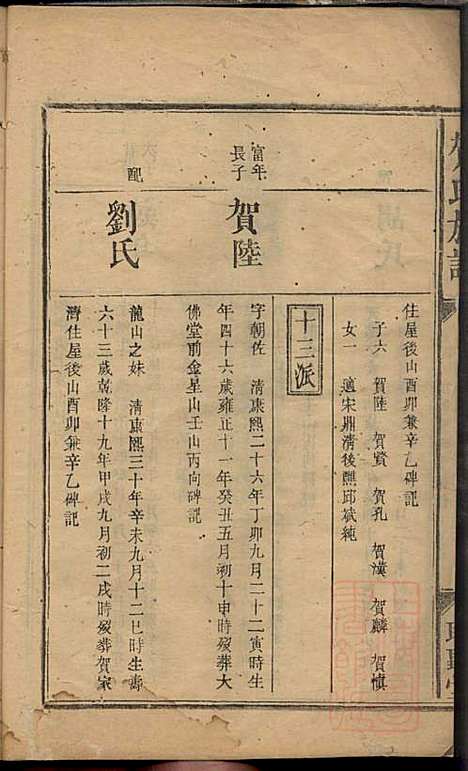 住屋後山酉卯兼辛乙碑記
子六　賀陸　賀賢　賀孔　賀漢　賀麟　賀慎
女一　適宋鼎清後熙邱斌純
十三派
富年
長子
賀陸
字朝佐　清康熙二十六年丁卯九月二十二寅時生
年四十六歲雍正十一年癸丑五月初十申時歿葬大
佛堂前金星山壬山丙向碑記
配
劉氏
龍山之妹　清康熙三十年辛未九月十二巳時生壽
六十三歲乾隆十九年甲戌九月初二戌時歿葬賀家
濟住屋後山酉卯兼辛乙碑記